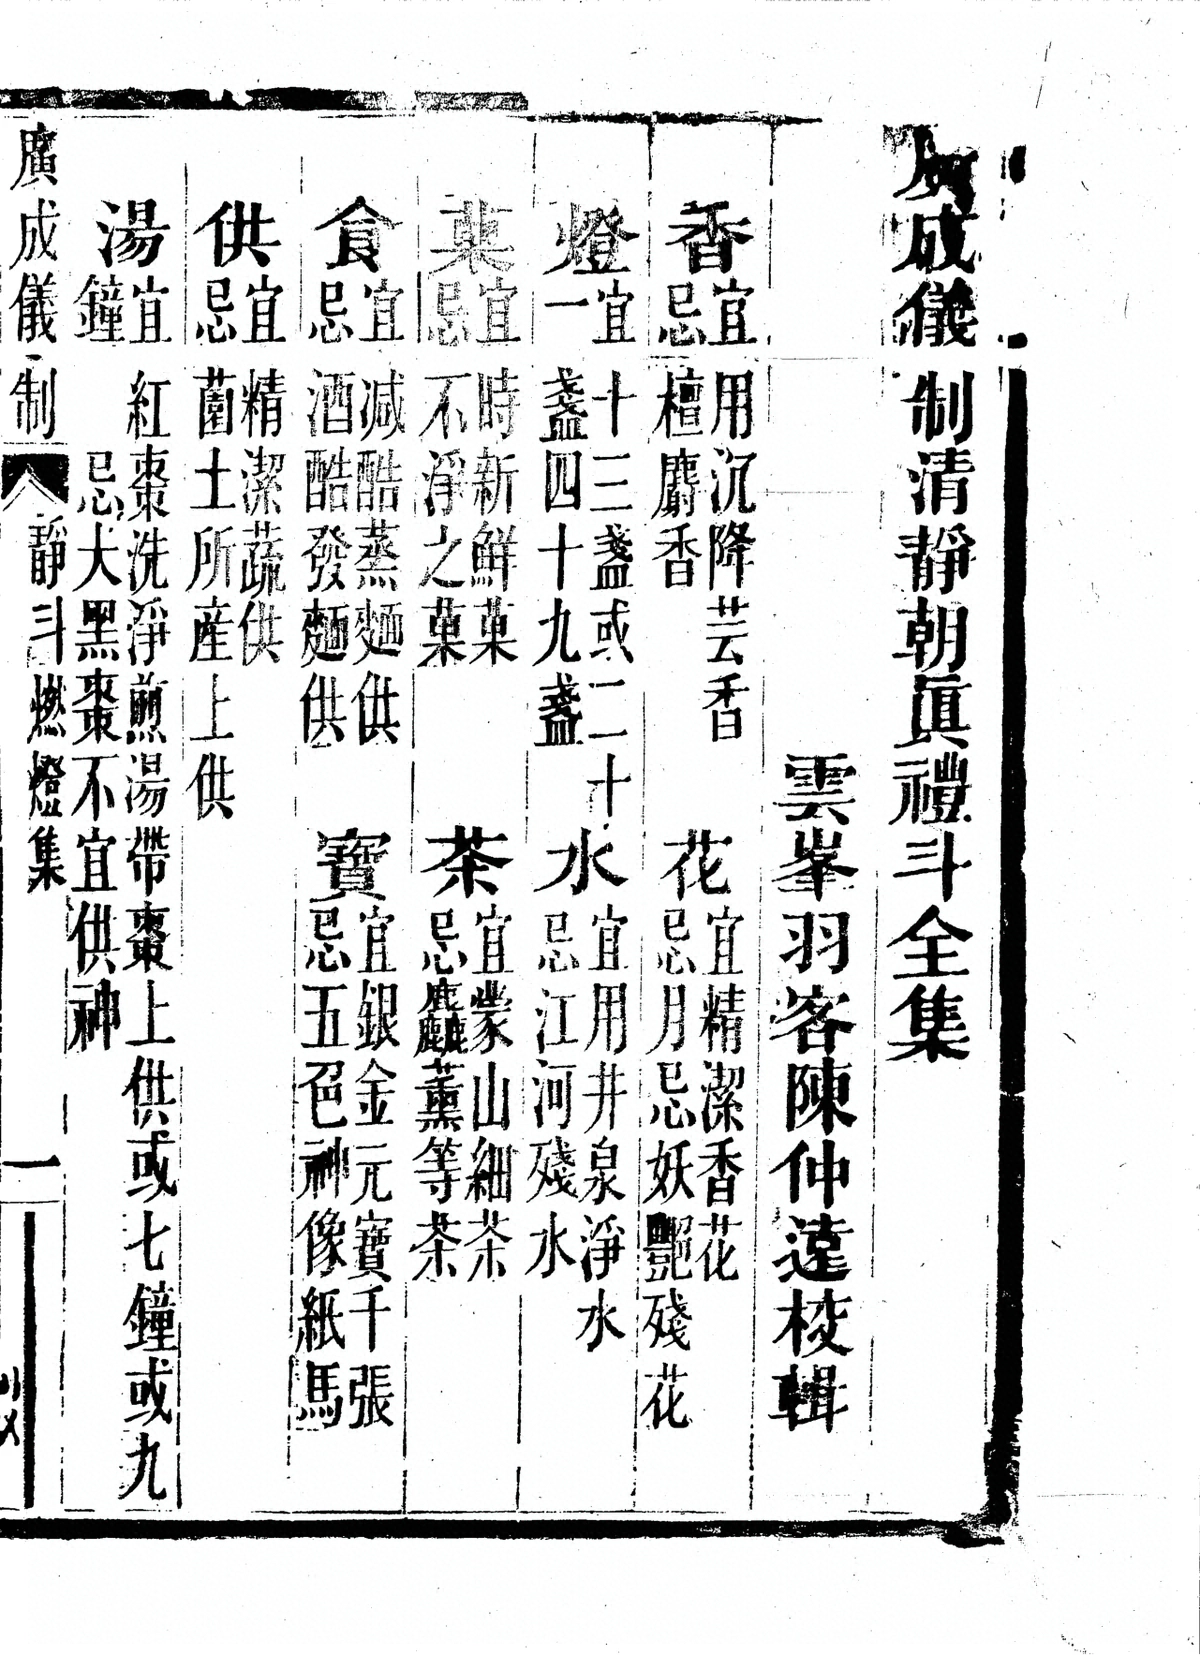 廣成儀制清靜朝眞禮斗全集
雲峯羽客陳仲遠校輯
香
宜用沉降芸香
忌檀麝香
花
宜精潔香花
忌月忌妖艷殘花
燈
宜十三盞或二十
一盞四十九盞
水
宜用井泉淨水
忌江河殘水
菓
宜時新鮮菓
忌不淨之菓
茶
宜蒙山細茶
忌麤薰等茶
食
宜減酷蒸麵供
忌酒酷發麵供
寶
宜銀金元寶千張
忌五色神像紙馬
供
宜精潔蔬供
忌菌土所産上供
湯
宜紅棗洗淨煎湯帶棗上供或七鐘或九
鐘忌大黑棗不宜供神
廣成儀制
靜斗燃燈集
一